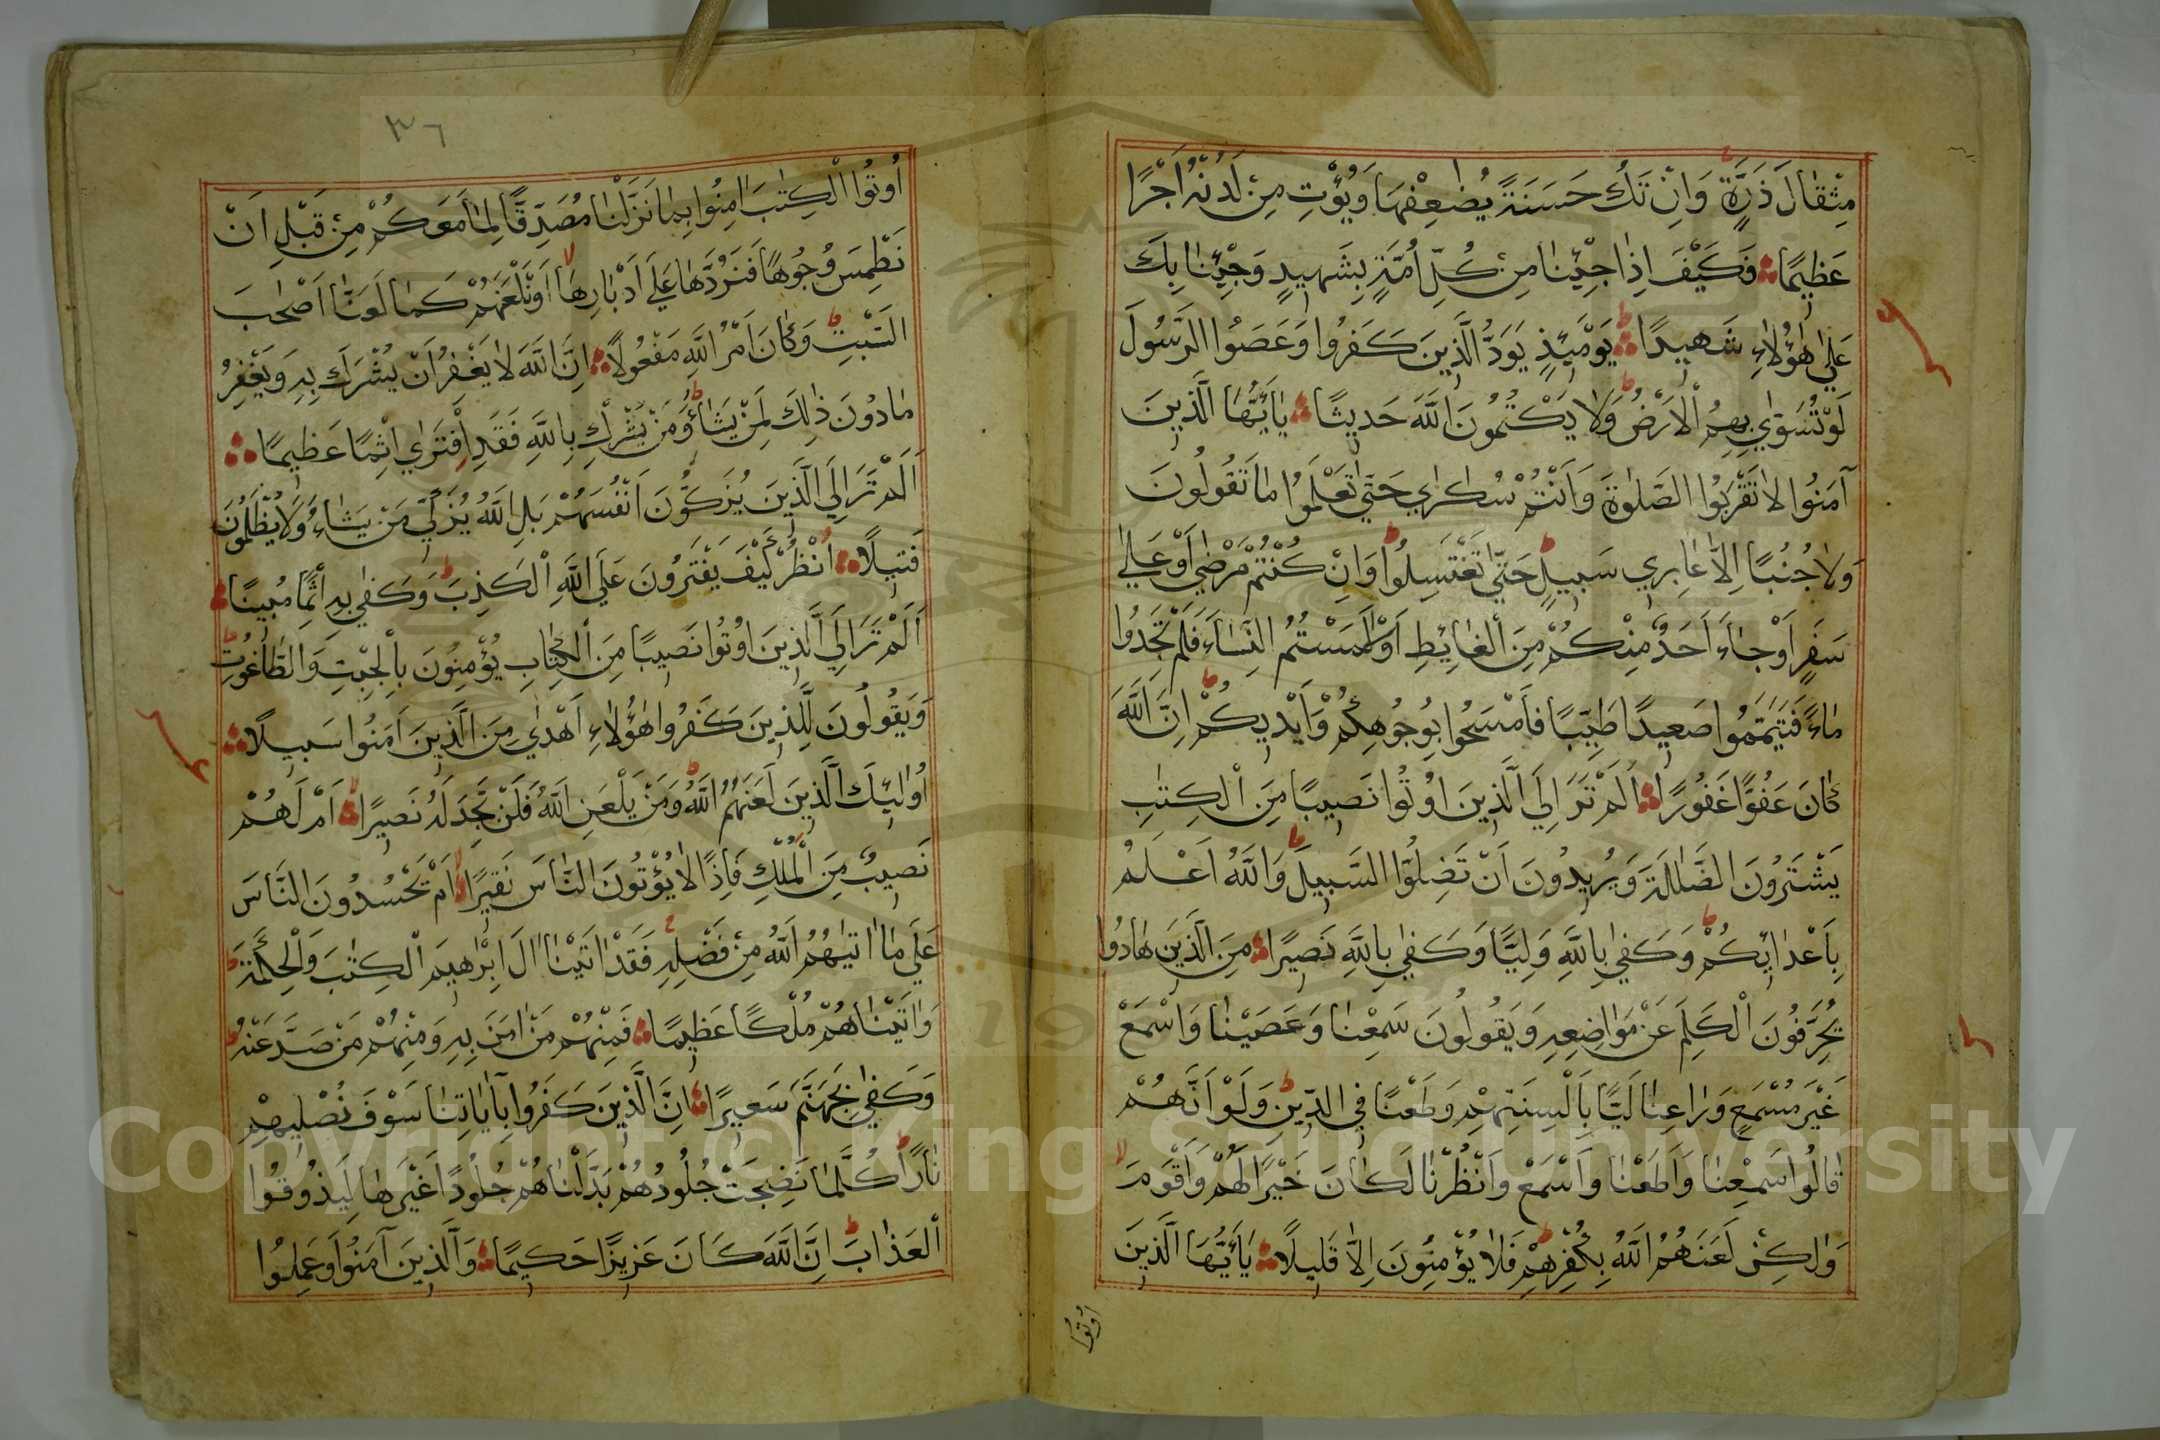 مِثْقَالَ ذَرَّةٍ وَاِنْ تَكُ حَسَنَةً يُضٰعِفْهَا وَيُؤْتِ مِنْ لَدُنْهُ اَجْرًا
عَظِيمًا فَكَيْفَ اِذَا جِئْنَا مِنْ كُلِّ اُمَّةٍ بِشَهِيدٍ وَجِئْنَا بِكَ
عَلٰى هٰؤُلَاءِ شَهِيدًا يَوْمَئِذٍ يَوَدُّ الَّذِينَ كَفَرُوا وَعَصَوُا الرَّسُولَ
لَوْ تُسَوّٰى بِهِمُ الْاَرْضُ وَلَا يَكْتُمُونَ اللّٰهَ حَدِيثًا يَا اَيُّهَا الَّذِينَ
آمَنُوا لَا تَقْرَبُوا الصَّلٰوةَ وَاَنْتُمْ سُكَارٰى حَتّٰى تَعْلَمُوا مَا تَقُولُونَ
وَلَا جُنُبًا اِلَّا عَابِرِي سَبِيلٍ حَتّٰى تَغْتَسِلُوا وَاِنْ كُنْتُمْ مَرْضٰى اَوْ عَلٰى
سَفَرٍ اَوْ جَاءَ اَحَدٌ مِنْكُمْ مِنَ الْغَائِطِ اَوْ لٰمَسْتُمُ النِّسَاءَ فَلَمْ تَجِدُوا
مَاءً فَتَيَمَّمُوا صَعِيدًا طَيِّبًا فَامْسَحُوا بِوُجُوهِكُمْ وَاَيْدِيكُمْ اِنَّ اللّٰهَ
كَانَ عَفُوًّا غَفُورًا اَلَمْ تَرَ اِلَى الَّذِينَ اُوتُوا نَصِيبًا مِنَ الْكِتٰبِ
يَشْتَرُونَ الضَّلَالَةَ وَيُرِيدُونَ اَنْ تَضِلُّوا السَّبِيلَ وَاللّٰهُ اَعْلَمُ
بِاَعْدَائِكُمْ وَكَفٰى بِاللّٰهِ وَلِيًّا وَكَفٰى بِاللّٰهِ نَصِيرًا مِنَ الَّذِينَ هَادُوا
يُحَرِّفُونَ الْكَلِمَ عَنْ مَوَاضِعِهِ وَيَقُولُونَ سَمِعْنَا وَعَصَيْنَا وَاسْمَعْ
غَيْرَ مُسْمَعٍ وَرَاعِنَا لَيًّا بِاَلْسِنَتِهِمْ وَطَعْنًا فِي الدِّينِ وَلَوْ اَنَّهُمْ
قَالُوا سَمِعْنَا وَاَطَعْنَا وَاسْمَعْ وَانْظُرْنَا لَكَانَ خَيْرًا لَهُمْ وَاَقْوَمَ
وَلٰكِنْ لَعَنَهُمُ اللّٰهُ بِكُفْرِهِمْ فَلَا يُؤْمِنُونَ اِلَّا قَلِيلًا يَا اَيُّهَا الَّذِينَ
اُوتُوا
٣٦
اُوتُوا الْكِتٰبَ اٰمِنُوا بِمَا نَزَّلْنَا مُصَدِّقًا لِمَا مَعَكُمْ مِنْ قَبْلِ اَنْ
نَطْمِسَ وُجُوهًا فَنَرُدَّهَا عَلٰى اَدْبَارِهَا اَوْ نَلْعَنَهُمْ كَمَا لَعَنَّا اَصْحَابَ
السَّبْتِ وَكَانَ اَمْرُ اللّٰهِ مَفْعُولًا اِنَّ اللّٰهَ لَا يَغْفِرُ اَنْ يُشْرَكَ بِهِ وَيَغْفِرُ
مَا دُونَ ذٰلِكَ لِمَنْ يَشَاءُ وَمَنْ يُشْرِكْ بِاللّٰهِ فَقَدِ افْتَرٰى اِثْمًا عَظِيمًا
اَلَمْ تَرَ اِلَى الَّذِينَ يُزَكُّونَ اَنْفُسَهُمْ بَلِ اللّٰهُ يُزَكِّي مَنْ يَشَاءُ وَلَا يُظْلَمُونَ
فَتِيلًا اُنْظُرْ كَيْفَ يَفْتَرُونَ عَلَى اللّٰهِ الْكَذِبَ وَكَفٰى بِهِ اِثْمًا مُبِينًا
اَلَمْ تَرَ اِلَى الَّذِينَ اُوتُوا نَصِيبًا مِنَ الْكِتَابِ يُؤْمِنُونَ بِالْجِبْتِ وَالطَّاغُوتِ
وَيَقُولُونَ لِلَّذِينَ كَفَرُوا هٰؤُلَاءِ اَهْدٰى مِنَ الَّذِينَ اٰمَنُوا سَبِيلًا
اُولٰئِكَ الَّذِينَ لَعَنَهُمُ اللّٰهُ وَمَنْ يَلْعَنِ اللّٰهُ فَلَنْ تَجِدَ لَهُ نَصِيرًا اَمْ لَهُمْ
نَصِيبٌ مِنَ الْمُلْكِ فَاِذًا لَا يُؤْتُونَ النَّاسَ نَقِيرًا اَمْ يَحْسُدُونَ النَّاسَ
عَلٰى مَا اٰتٰيهُمُ اللّٰهُ مِنْ فَضْلِهِ فَقَدْ اٰتَيْنَا اٰلَ اِبْرٰهِيمَ الْكِتٰبَ وَالْحِكْمَةَ
وَاٰتَيْنَاهُمْ مُلْكًا عَظِيمًا فَمِنْهُمْ مَنْ اٰمَنَ بِهِ وَمِنْهُمْ مَنْ صَدَّ عَنْهُ
وَكَفٰى بِجَهَنَّمَ سَعِيرًا اِنَّ الَّذِينَ كَفَرُوا بِآيَاتِنَا سَوْفَ نُصْلِيهِمْ
نَارًا كُلَّمَا نَضِجَتْ جُلُودُهُمْ بَدَّلْنَاهُمْ جُلُودًا غَيْرَهَا لِيَذُوقُوا
الْعَذَابَ اِنَّ اللّٰهَ كَانَ عَزِيزًا حَكِيمًا وَالَّذِينَ آمَنُوا وَعَمِلُوا
Copyright © King Saud University